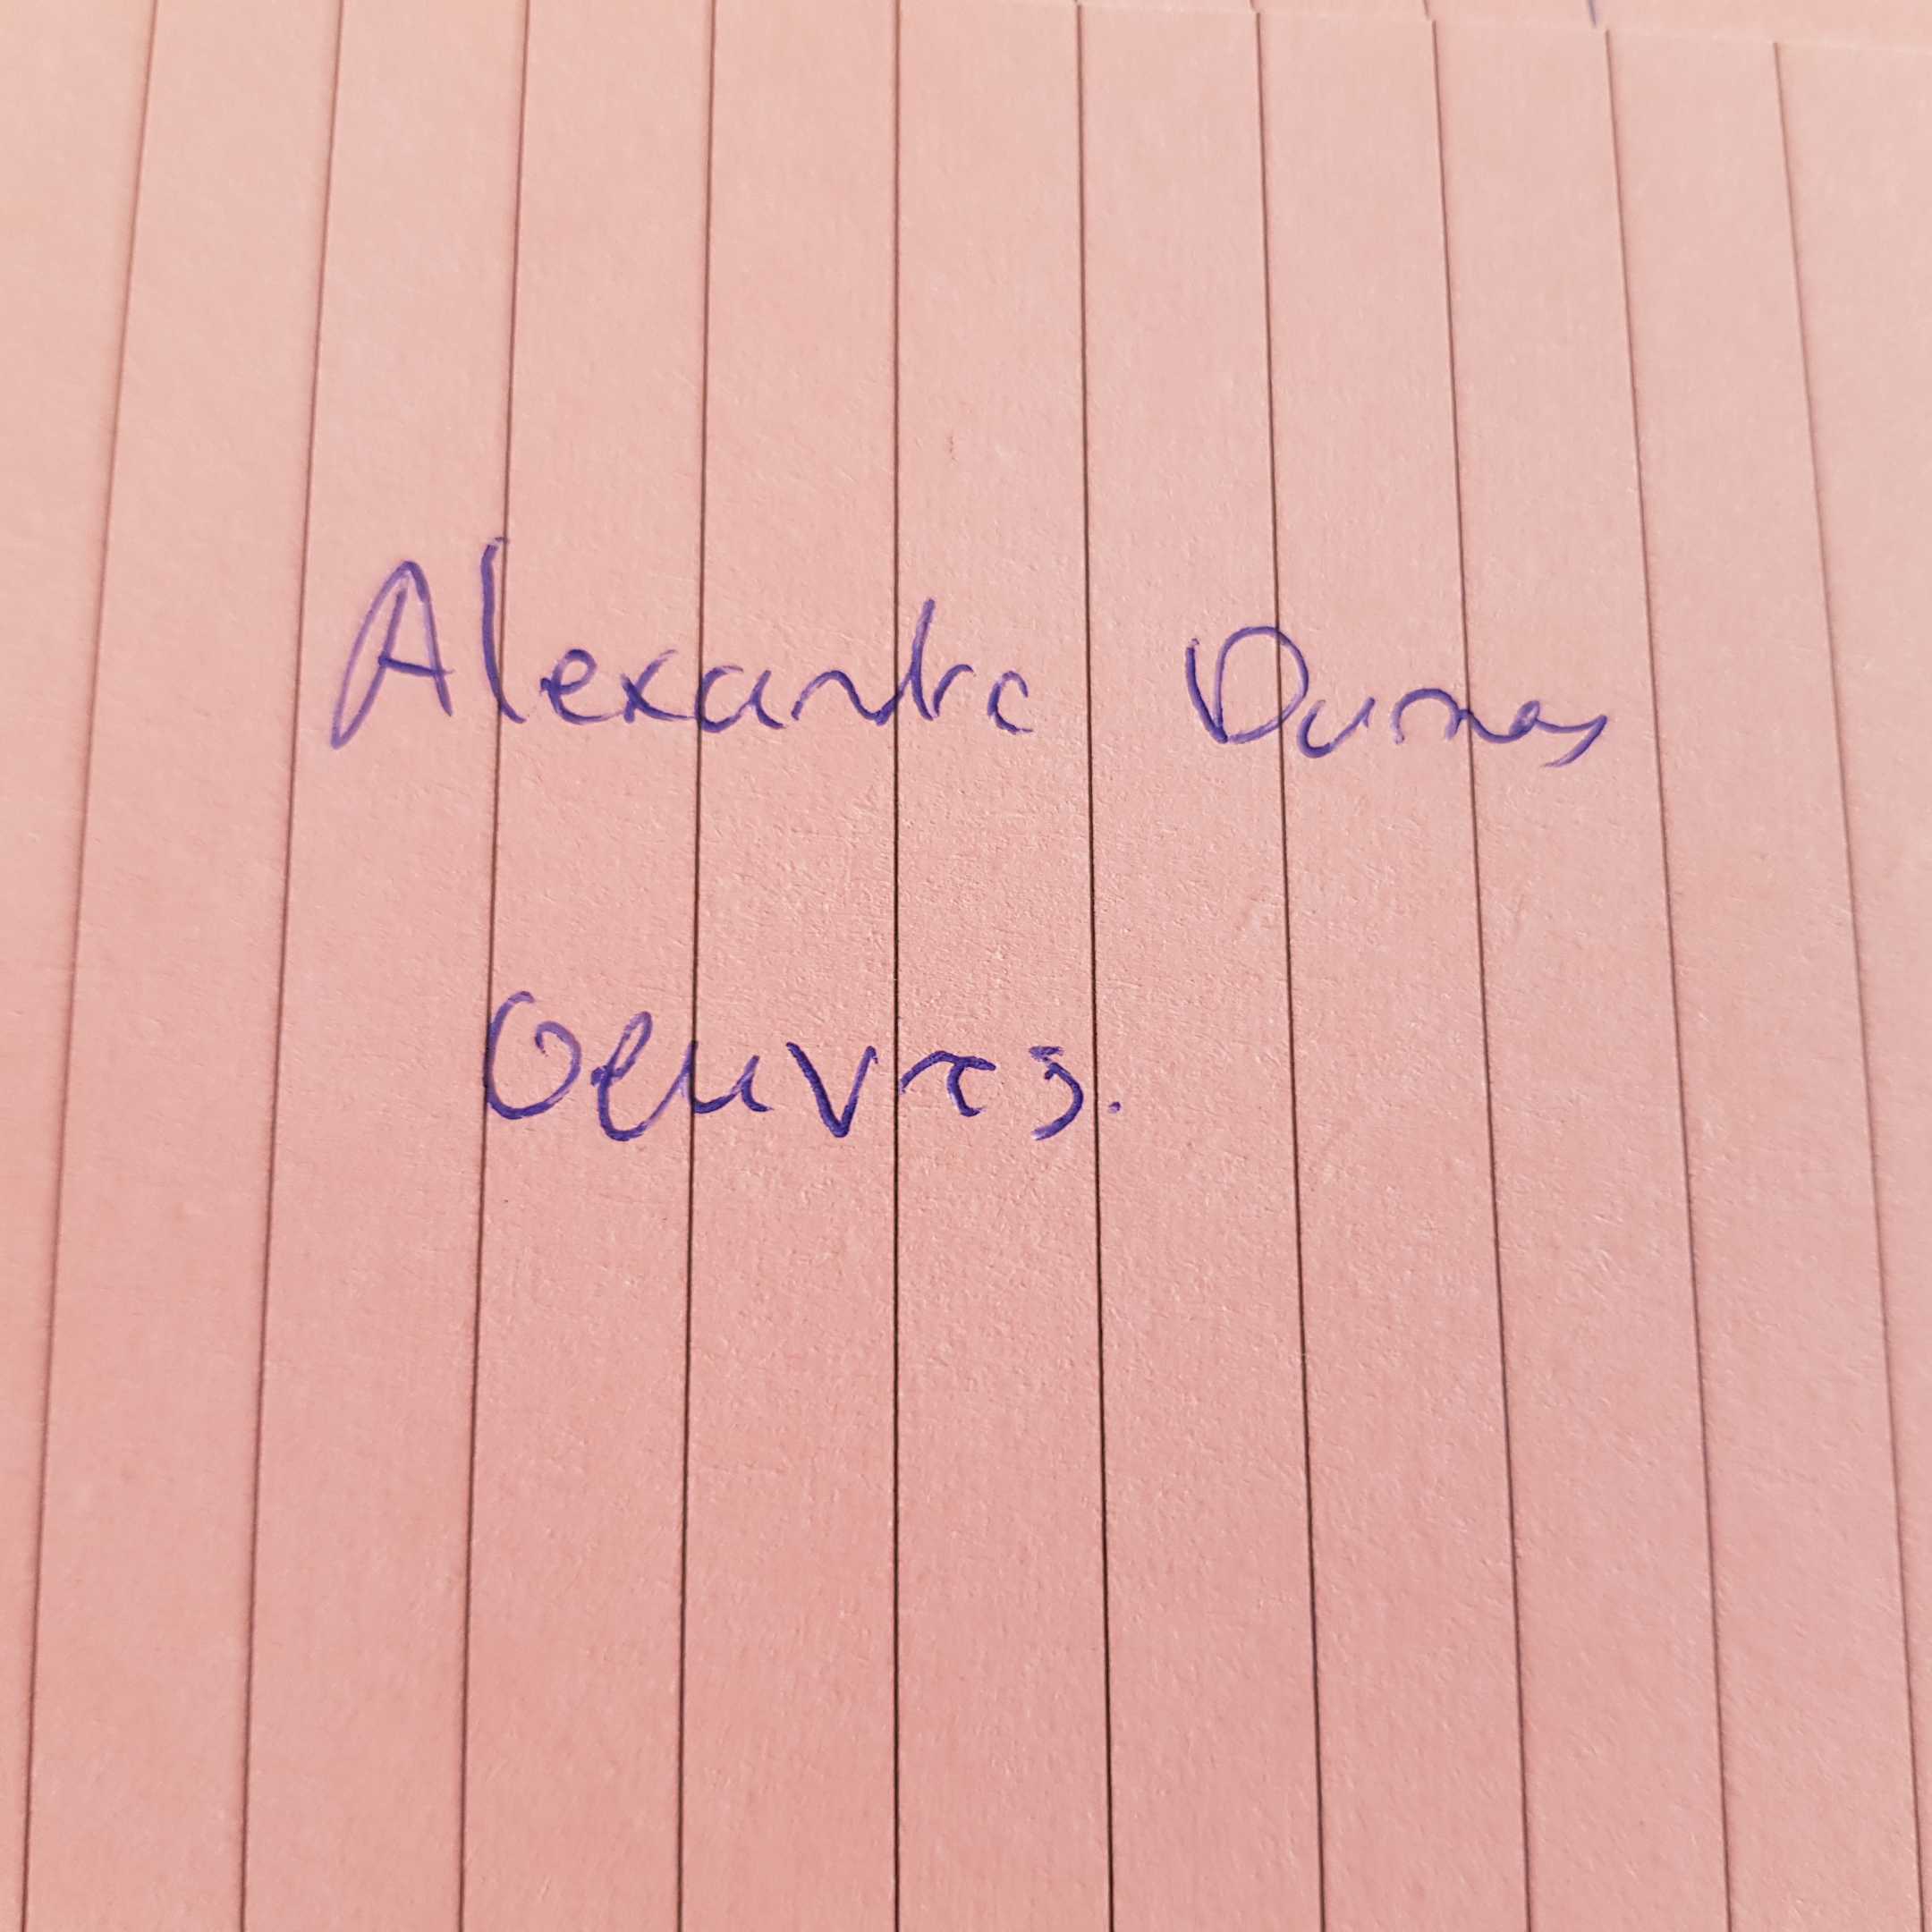 Alexandre Dumas
Oeuvres.